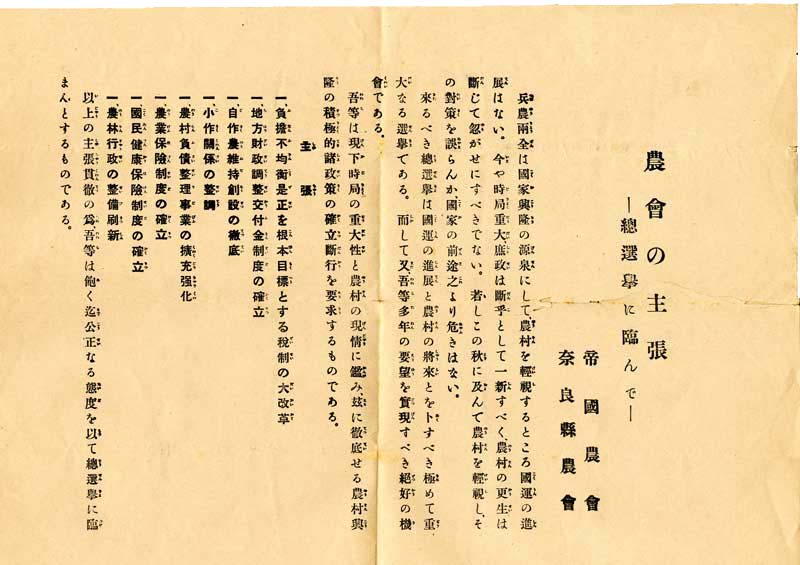 農會の主張
―總選擧に臨んで―
帝國農會
奈良縣農會
兵農兩全は國家興隆の源泉にして、農村を輕視するところ國運の進
展はない。今や時局重大、庶政は斷乎として一新すべく、農村の更生は
斷じて忽がせにすべきでない。若しこの秋に及んで農村を輕視し、そ
の對策を誤らんか國家の前途之より危きはない。
來るべき總選擧は國運の進展と農村の將來とを卜すべき極めて重
大なる選擧である。而して又、吾等多年の要望を實現すべき絕好の機
會である。
吾等は現下時局の重大性と農村の現情に鑑み玆に徹底せる農村興
隆の積極的諸政策の確立斷行を要求するものである。
主張
一、負擔不均衡是正を根本目標とする稅制の大改革
一、地方財政調整交付金制度の確立
一、自作農維持創設の徹底
一、小作關係の整調
一、農村負債整理事業の擴充强化
一、農業保險制度の確立
一、國民健康保險制度の確立
一、農林行政の整備刷新
以上の主張貫徹の爲、吾等は飽く迄公正なる態度を以て總選擧に臨
まんとするものである。